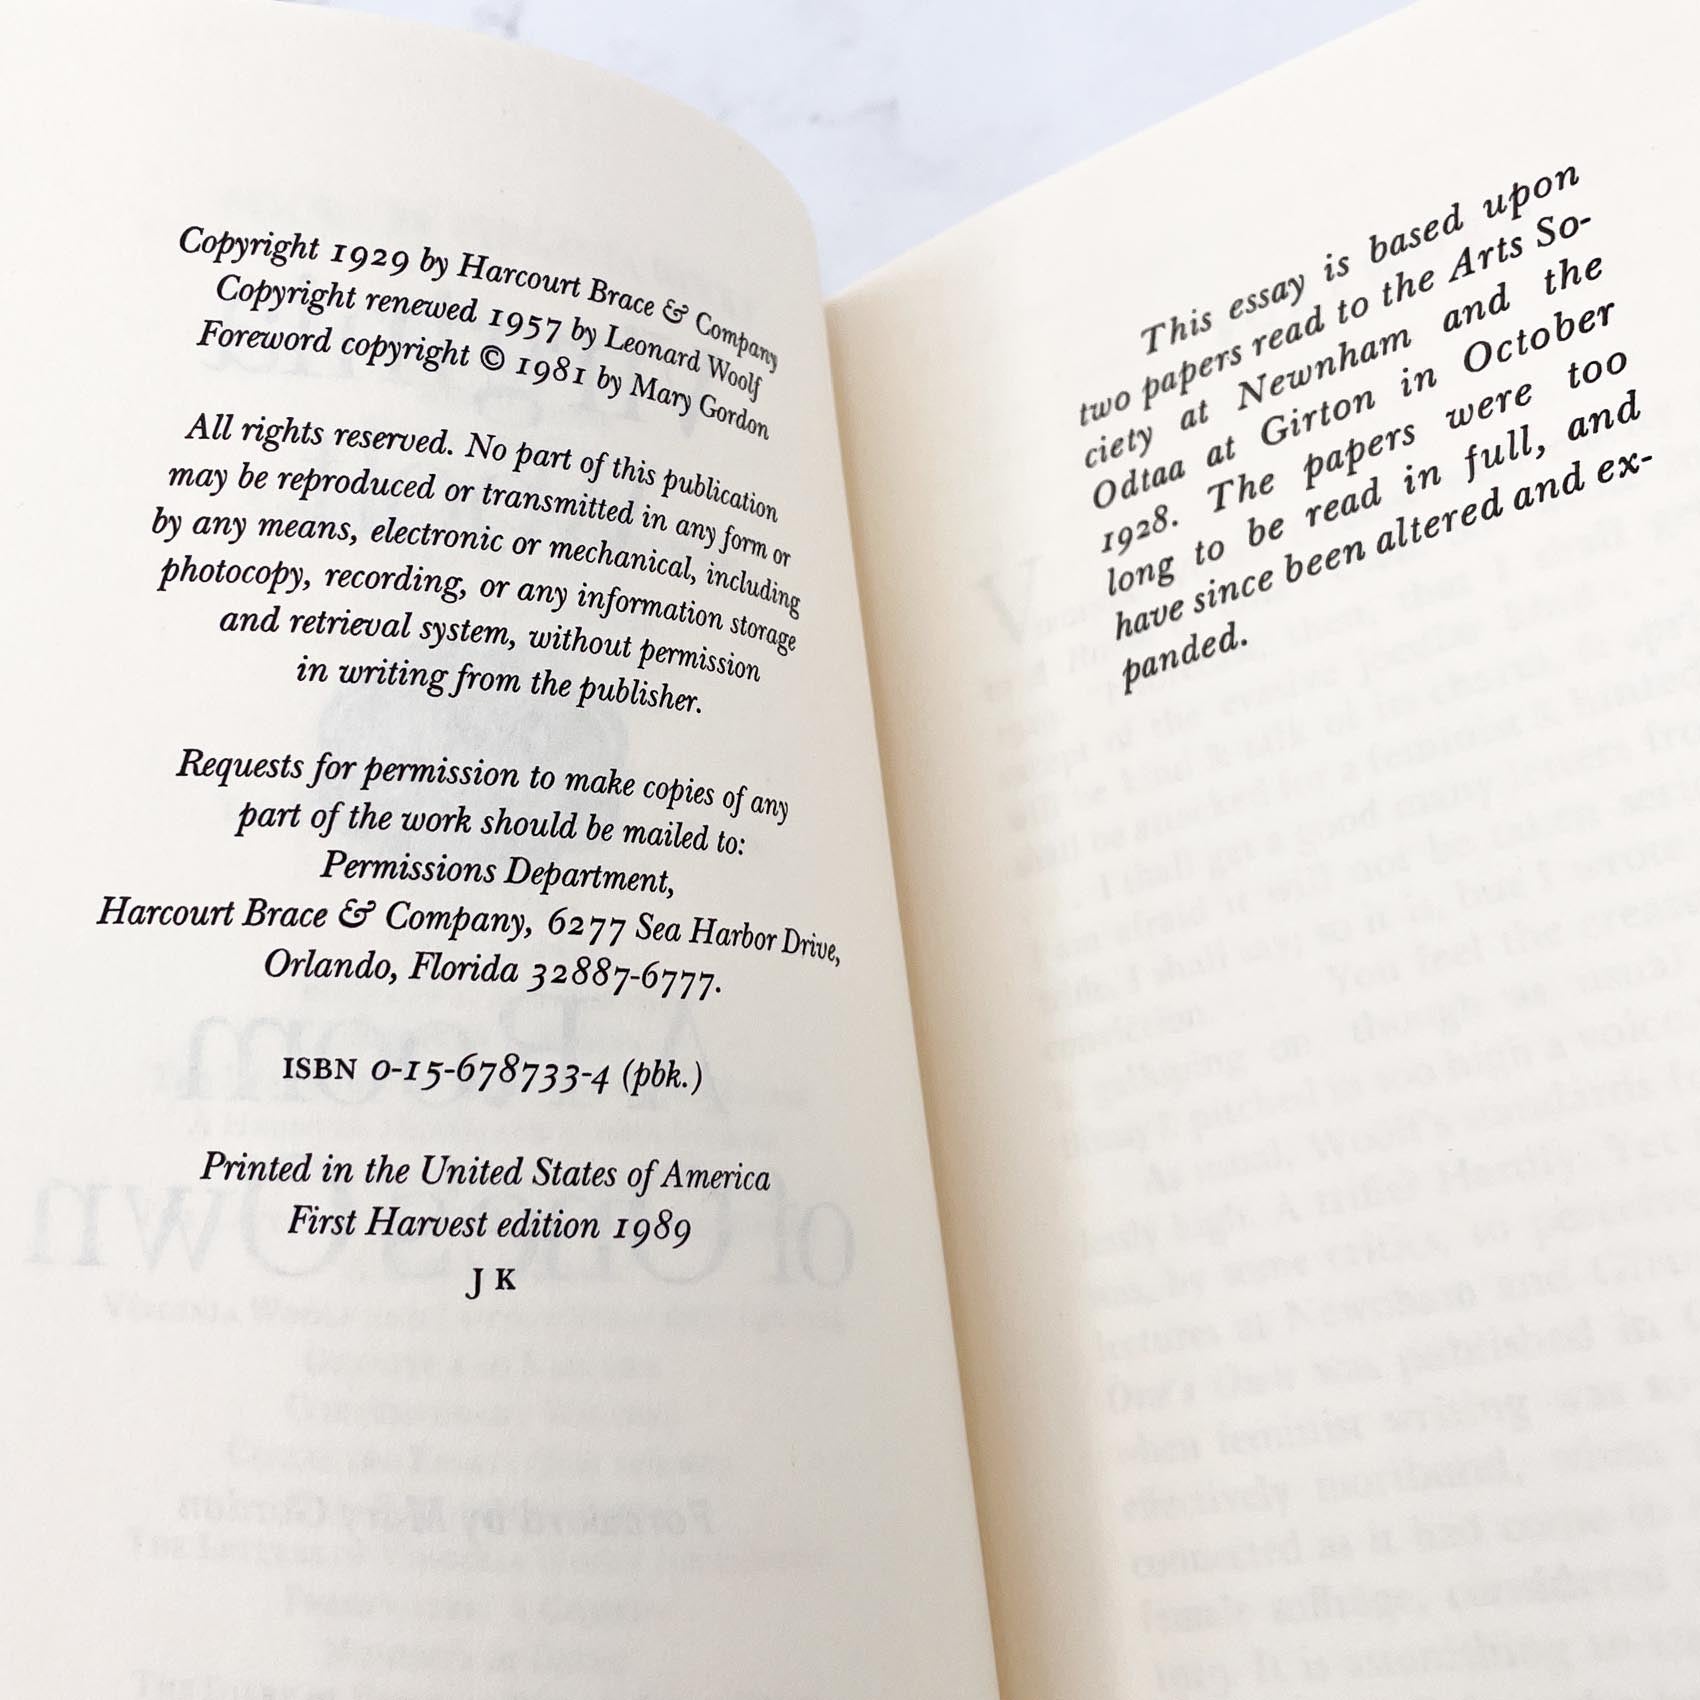 Copyright 1929 by Harcourt Brace & Company
Copyright renewed 1957 by Leonard Woolf
Foreword copyright © 1981 by Mary Gordon
All rights reserved. No part of this publication
may be reproduced or transmitted in any form or
by any means, electronic or mechanical, including
photocopy, recording, or any information storage
and retrieval system, without permission
in writing from the publisher.
Requests for permission to make copies of any
part of the work should be mailed to:
Permissions Department,
Harcourt Brace & Company, 6277 Sea Harbor Drive,
Orlando, Florida 32887-6777.
ISBN 0-15-678733-4 (pbk.)
Printed in the United States of America
First Harvest edition 1989
J K
This essay is based upon
two papers read to the Arts So-
ciety at Newnham and the
Odtaa at Girton in October
1928. The papers were too
long to be read in full, and
have since been altered and ex-
panded.